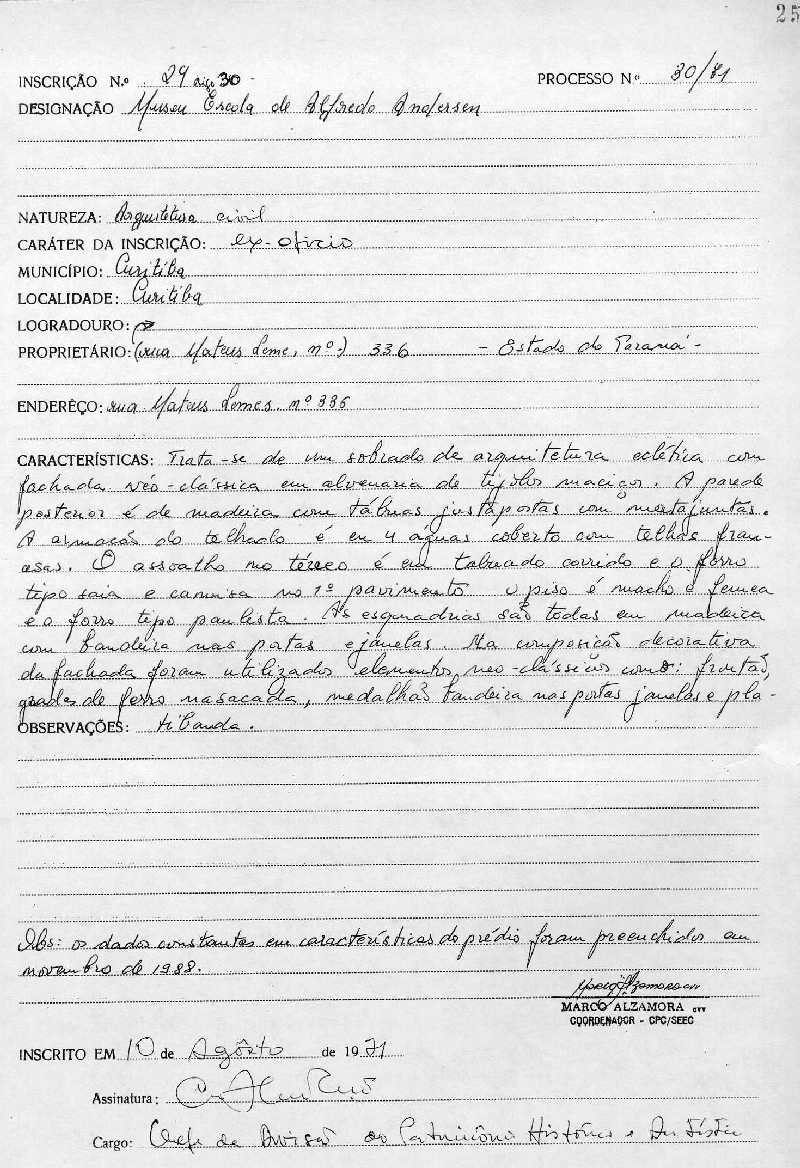 25
INSCRIÇÃO N.º 29 digo 30 - PROCESSO Nº 30/71
DESIGNAÇÃO Museu Escola de Alfredo Andersen
NATUREZA: Arquitetura civil
CARÁTER DA INSCRIÇÃO: ex-ofício
MUNICÍPIO: Curitiba
LOCALIDADE: Curitiba
LOGRADOURO:
PROPRIETÁRIO: (rua Mateus Leme, nº) 336 - Estado do Paraná -
ENDERÊÇO: rua Mateus Lemes nº 336
CARACTERÍSTICAS: Trata-se de um sobrado de arquitetura eclética com
fachada neo-clássica em alvenaria de tijolos maciços. A parede
posterior é de madeira com tábuas justapostas com matajuntas.
A armação do telhado é em 4 águas coberto com telhas fran-
cesas. O assoalho no térreo é em tabuado corrido e o forro
tipo saia e camisa no 1º pavimento o piso é macho e femea
e o forro tipo paulista. As esquadrias são todas em madeira
com bandeira nas portas e janelas. Na composição decorativa
da fachada foram utilizados elementos neo-clássicos como: frontão,
grades de ferro na sacada, medalhão bandeira nas portas janelas e pla-
OBSERVAÇÕES: tibanda.
Obs: os dados constantes em características do prédio foram preenchidos em
novembro de 1988.
MARCO ALZAMORA
COORDENADOR - CPC/SEEC
INSCRITO EM 10 de Agôsto de 1971
Assinatura:
Cargo: Chefe da Divisão do Patrimônio Histórico e Artístico